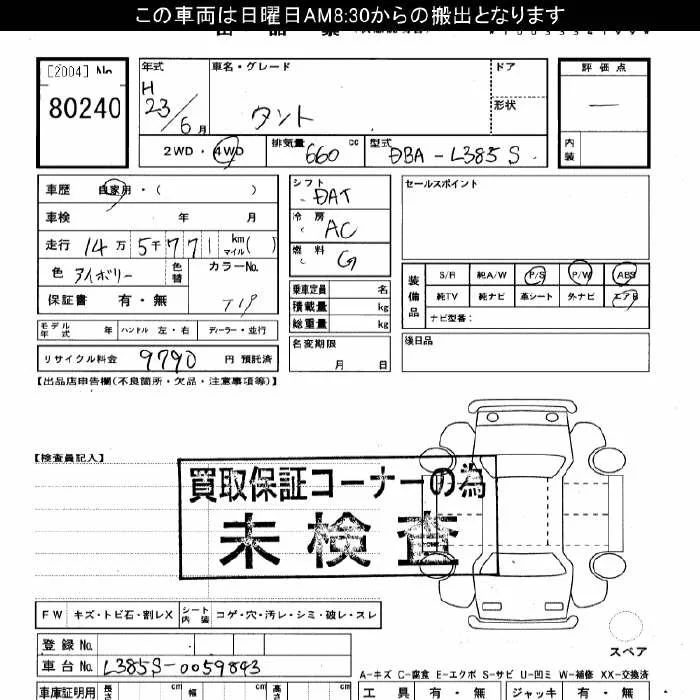 この車両は日曜日AM8:30からの搬出となります
[2004] No
80240
年式 車名・グレード ドア 評価点
H 23/6月 タント 形状 —
2WD・4WD 排気量 660 cc 型式 DBA-L385S 内装
車歴 自家用・( )
車検 年 月
走行 14万5千771 km マイル( )
色 アイボリー 色替 カラーNo.
T19
保証書 有・無
モデル年式 年 ハンドル 左・右 ディーラー・並行
リサイクル料金 9790 円 預託済
シフト DAT
冷房 AC
燃料 G
乗車定員 名
積載量 kg
総重量 kg
名変期限
月 日
セールスポイント
装備品 S/R 純A/W P/S P/W ABS
純TV 純ナビ 革シート 外ナビ エアB
ナビ型番:
後日品
【出品店申告欄(不良箇所・欠品・注意事項等)】
【検査員記入】
買取保証コーナーの為
未検査
FW キズ・トビ石・割レX シート内装 コゲ・穴・汚レ・シミ・破レ・スレ
スペア
登録No.
車台No. L385S-0059843
A-キズ C-腐食 E-エクボ S-サビ U-凹ミ W-補修 XX-交換済
車庫証明用 長さ cm 幅 cm 高さ cm
工具 有・無 ジャッキ 有・無